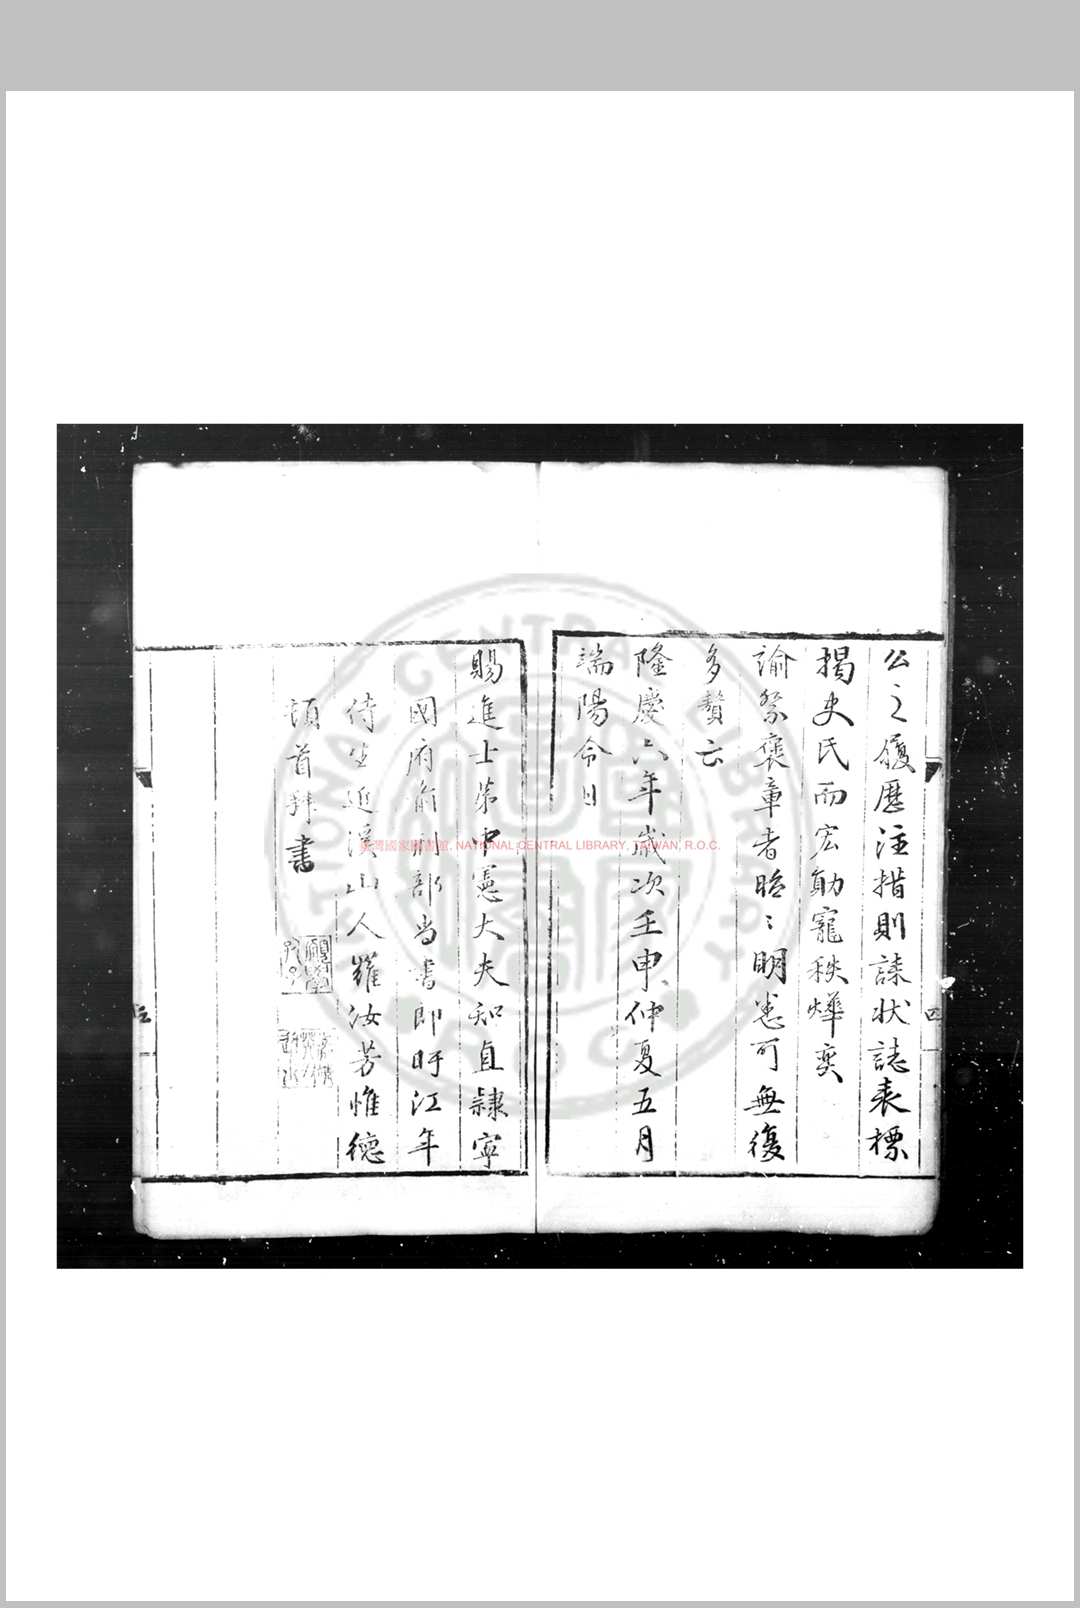 公之履歷注措則誄狀誌表標
揭史氏而宏勛寵秩燁奕
諭祭褒章者昭〻明悉可無復
多贅云
隆慶六年歲次壬申仲夏五月
端陽令日
賜進士第中憲大夫知直隸寧
國府前刑部尚書郎盱江年
侍生近溪山人羅汝芳惟德
頓首拜書
四
三
臺灣國家圖書館, NATIONAL CENTRAL LIBRARY, TAIWAN, R.O.C.
NATIONAL CENTRAL LIBRARY R.O.C.